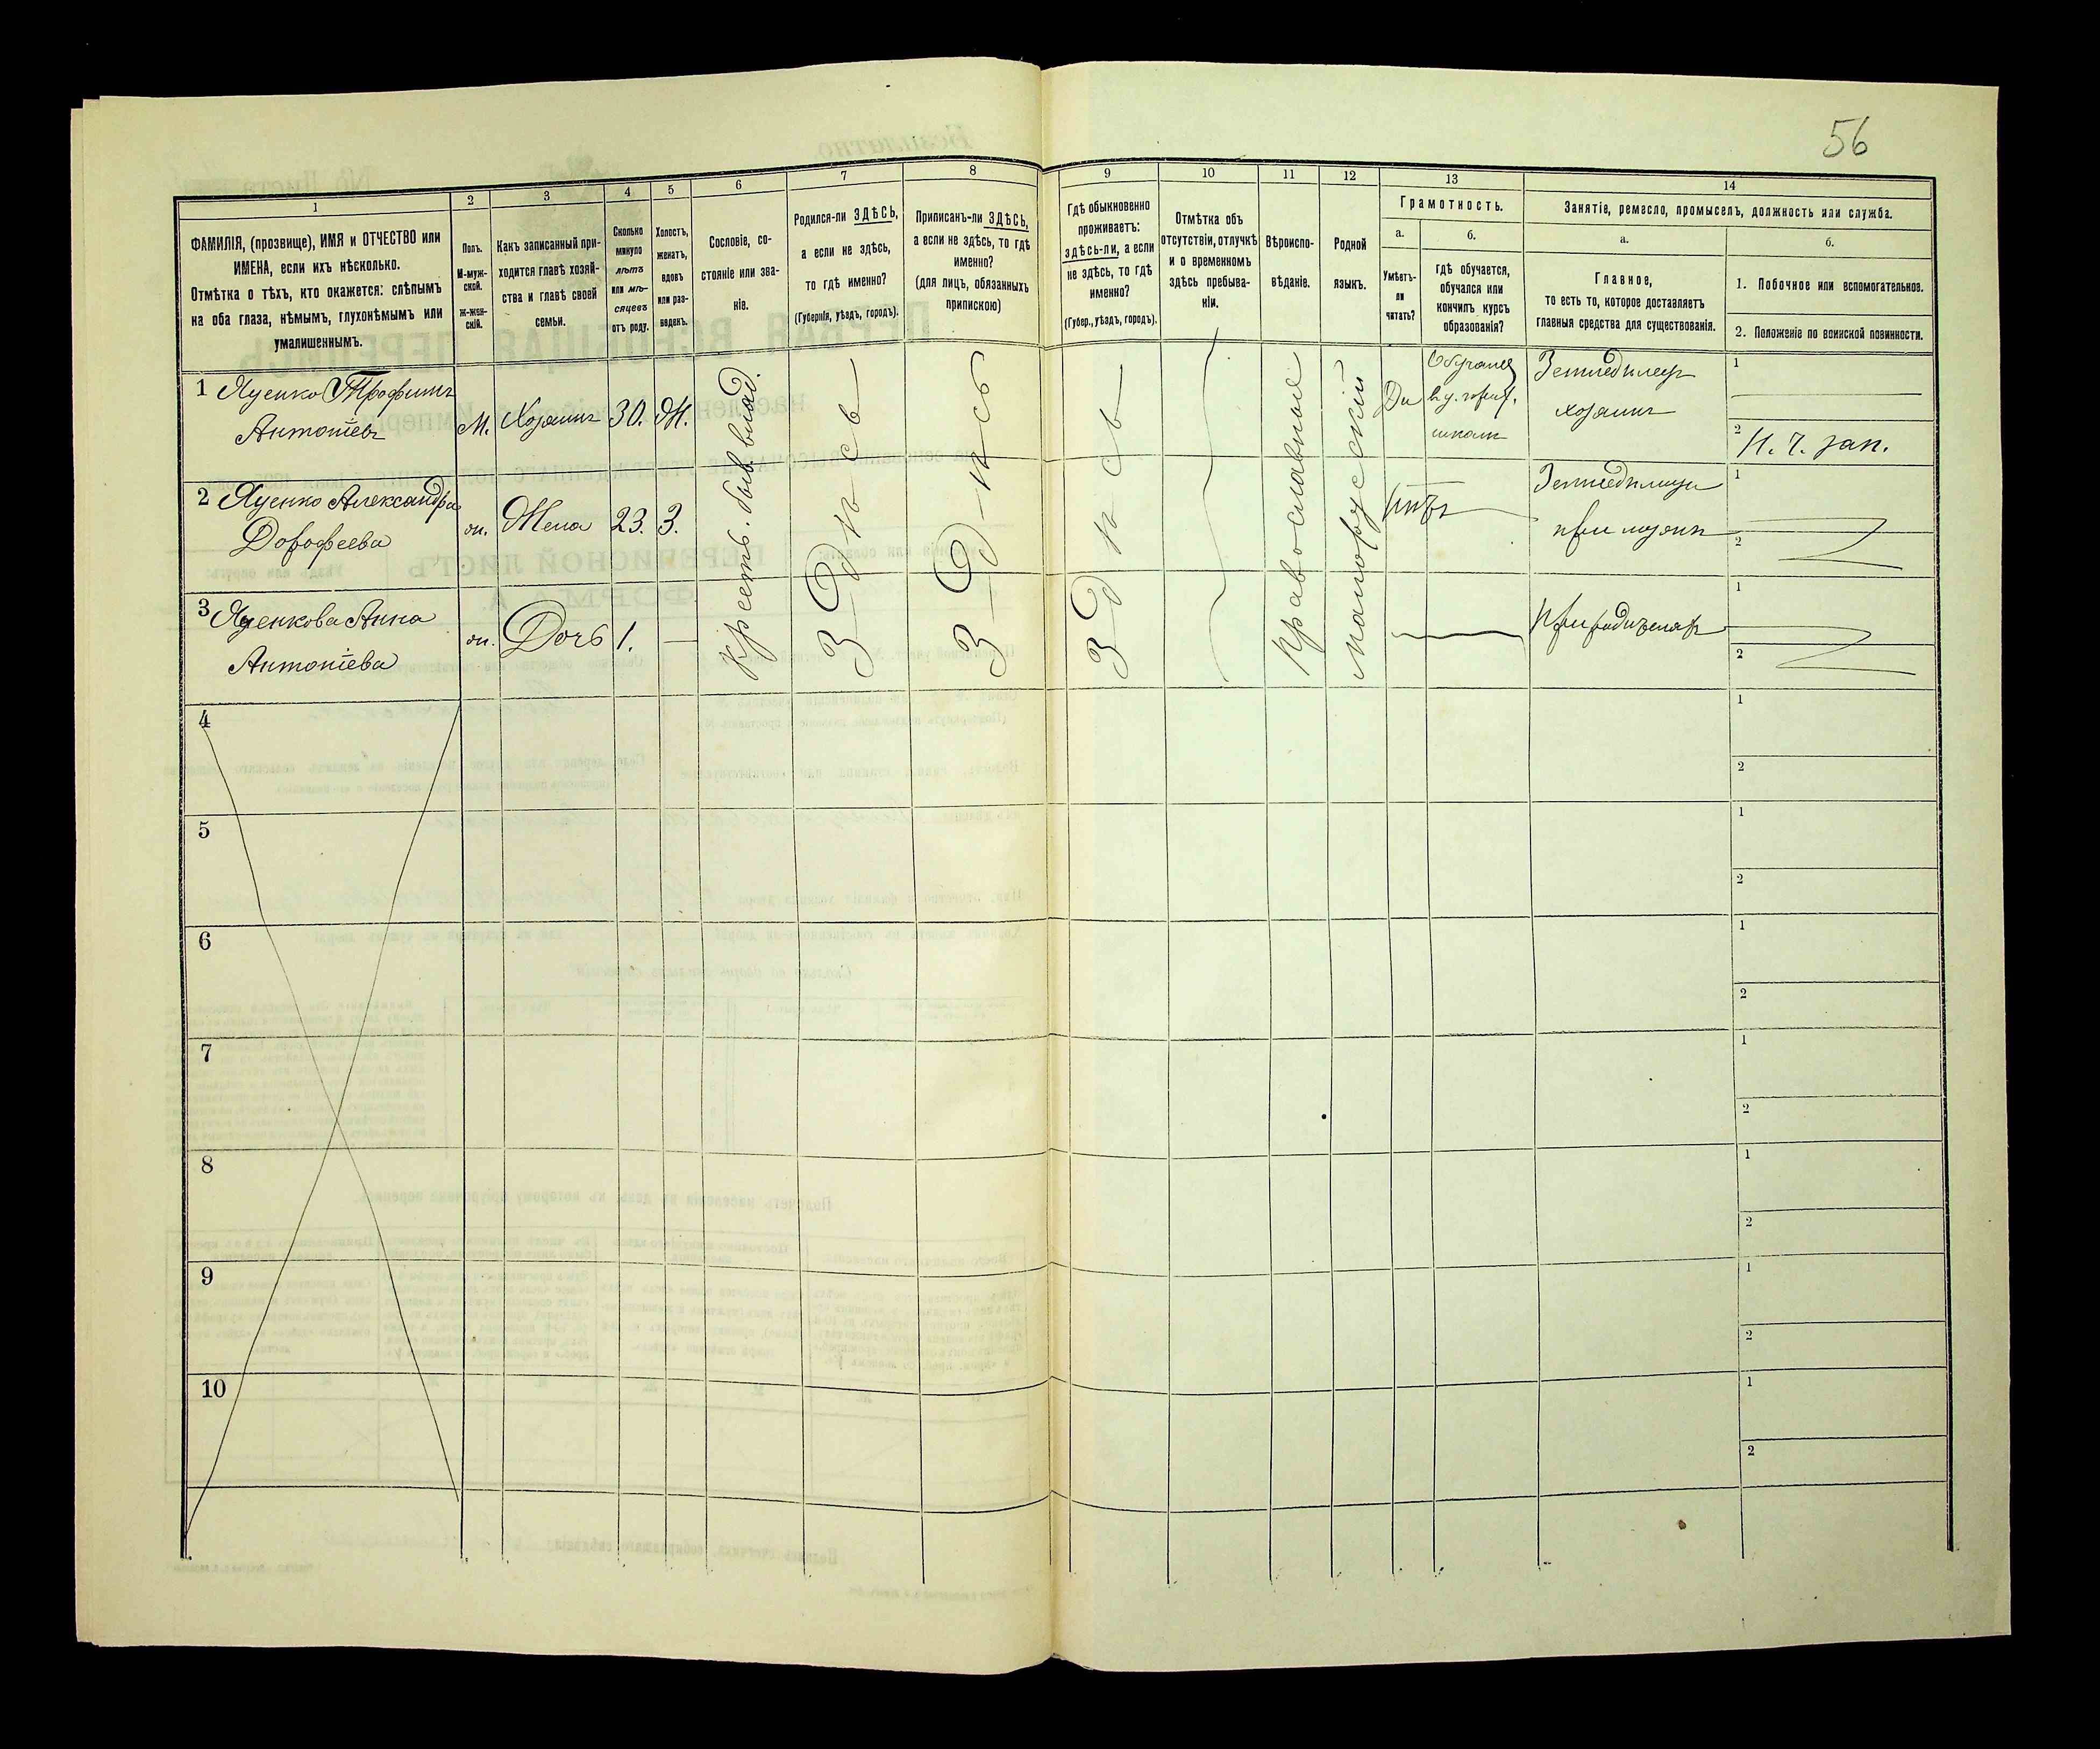 56
1
2
3
4
5
6
7
8
9
10
11
12
13
14
ФАМИЛІЯ, (прозвище), ИМЯ и ОТЧЕСТВО или
ИМЕНА, если ихъ нѣсколько.
Отмѣтка о тѣхъ, кто окажется: слѣпымъ
на оба глаза, нѣмымъ, глухонѣмымъ или
умалишеннымъ.
Полъ.
М-муж-
ской.
ж-жен-
скій.
Какъ записанный при-
ходится главѣ хозяй-
ства и главѣ своей
семьи.
Сколько
минуло
лѣтъ
или мѣ-
сяцевъ
отъ роду.
Холостъ,
женатъ,
вдовъ
или раз-
веденъ.
Сословіе, со-
стояніе или зва-
ніе.
Родился-ли ЗДѢСЬ,
а если не здѣсь,
то гдѣ именно?
(Губернія, уѣздъ, городъ).
Приписанъ-ли ЗДѢСЬ,
а если не здѣсь, то гдѣ
именно?
(для лицъ, обязанныхъ
припискою)
Гдѣ обыкновенно
проживаетъ:
здѣсь-ли, а если
не здѣсь, то гдѣ
именно?
(Губер., уѣздъ, городъ).
Отмѣтка объ
отсутствіи, отлучкѣ
и о временномъ
здѣсь пребыва-
ніи.
Вѣроиспо-
вѣданіе.
Родной
языкъ.
Грамотность.
а.
Умѣетъ-
ли
читать?
б.
гдѣ обучается,
обучался или
кончилъ курсъ
образованія?
Занятіе, ремесло, промыселъ, должность или служба.
а.
Главное,
то есть то, которое доставляетъ
главныя средства для существованія.
б.
1. Побочное или вспомогательное.
2. Положеніе по воинской повинности.
1 Яценко Трофимъ
Антоніевъ
М.
Хозяинъ
30.
Ж.
Крестъ. быв. влад.
Здѣсь
Здѣсь
Здѣсь
Православное
Малорусскій
Да
школѣ
Земледѣлецъ
хозяинъ
1
2
Н. Ч. зап.
2 Яценко Александра
Дорофеева
ж.
Жена
23.
З.
нѣтъ
Земледѣлица
при мужѣ
1
2
3 Яценкова Анна
Антоніева
ж.
Дочь
1.
При родителях
1
2
4
1
2
5
1
2
6
1
2
7
1
2
8
1
2
9
1
2
10
1
2